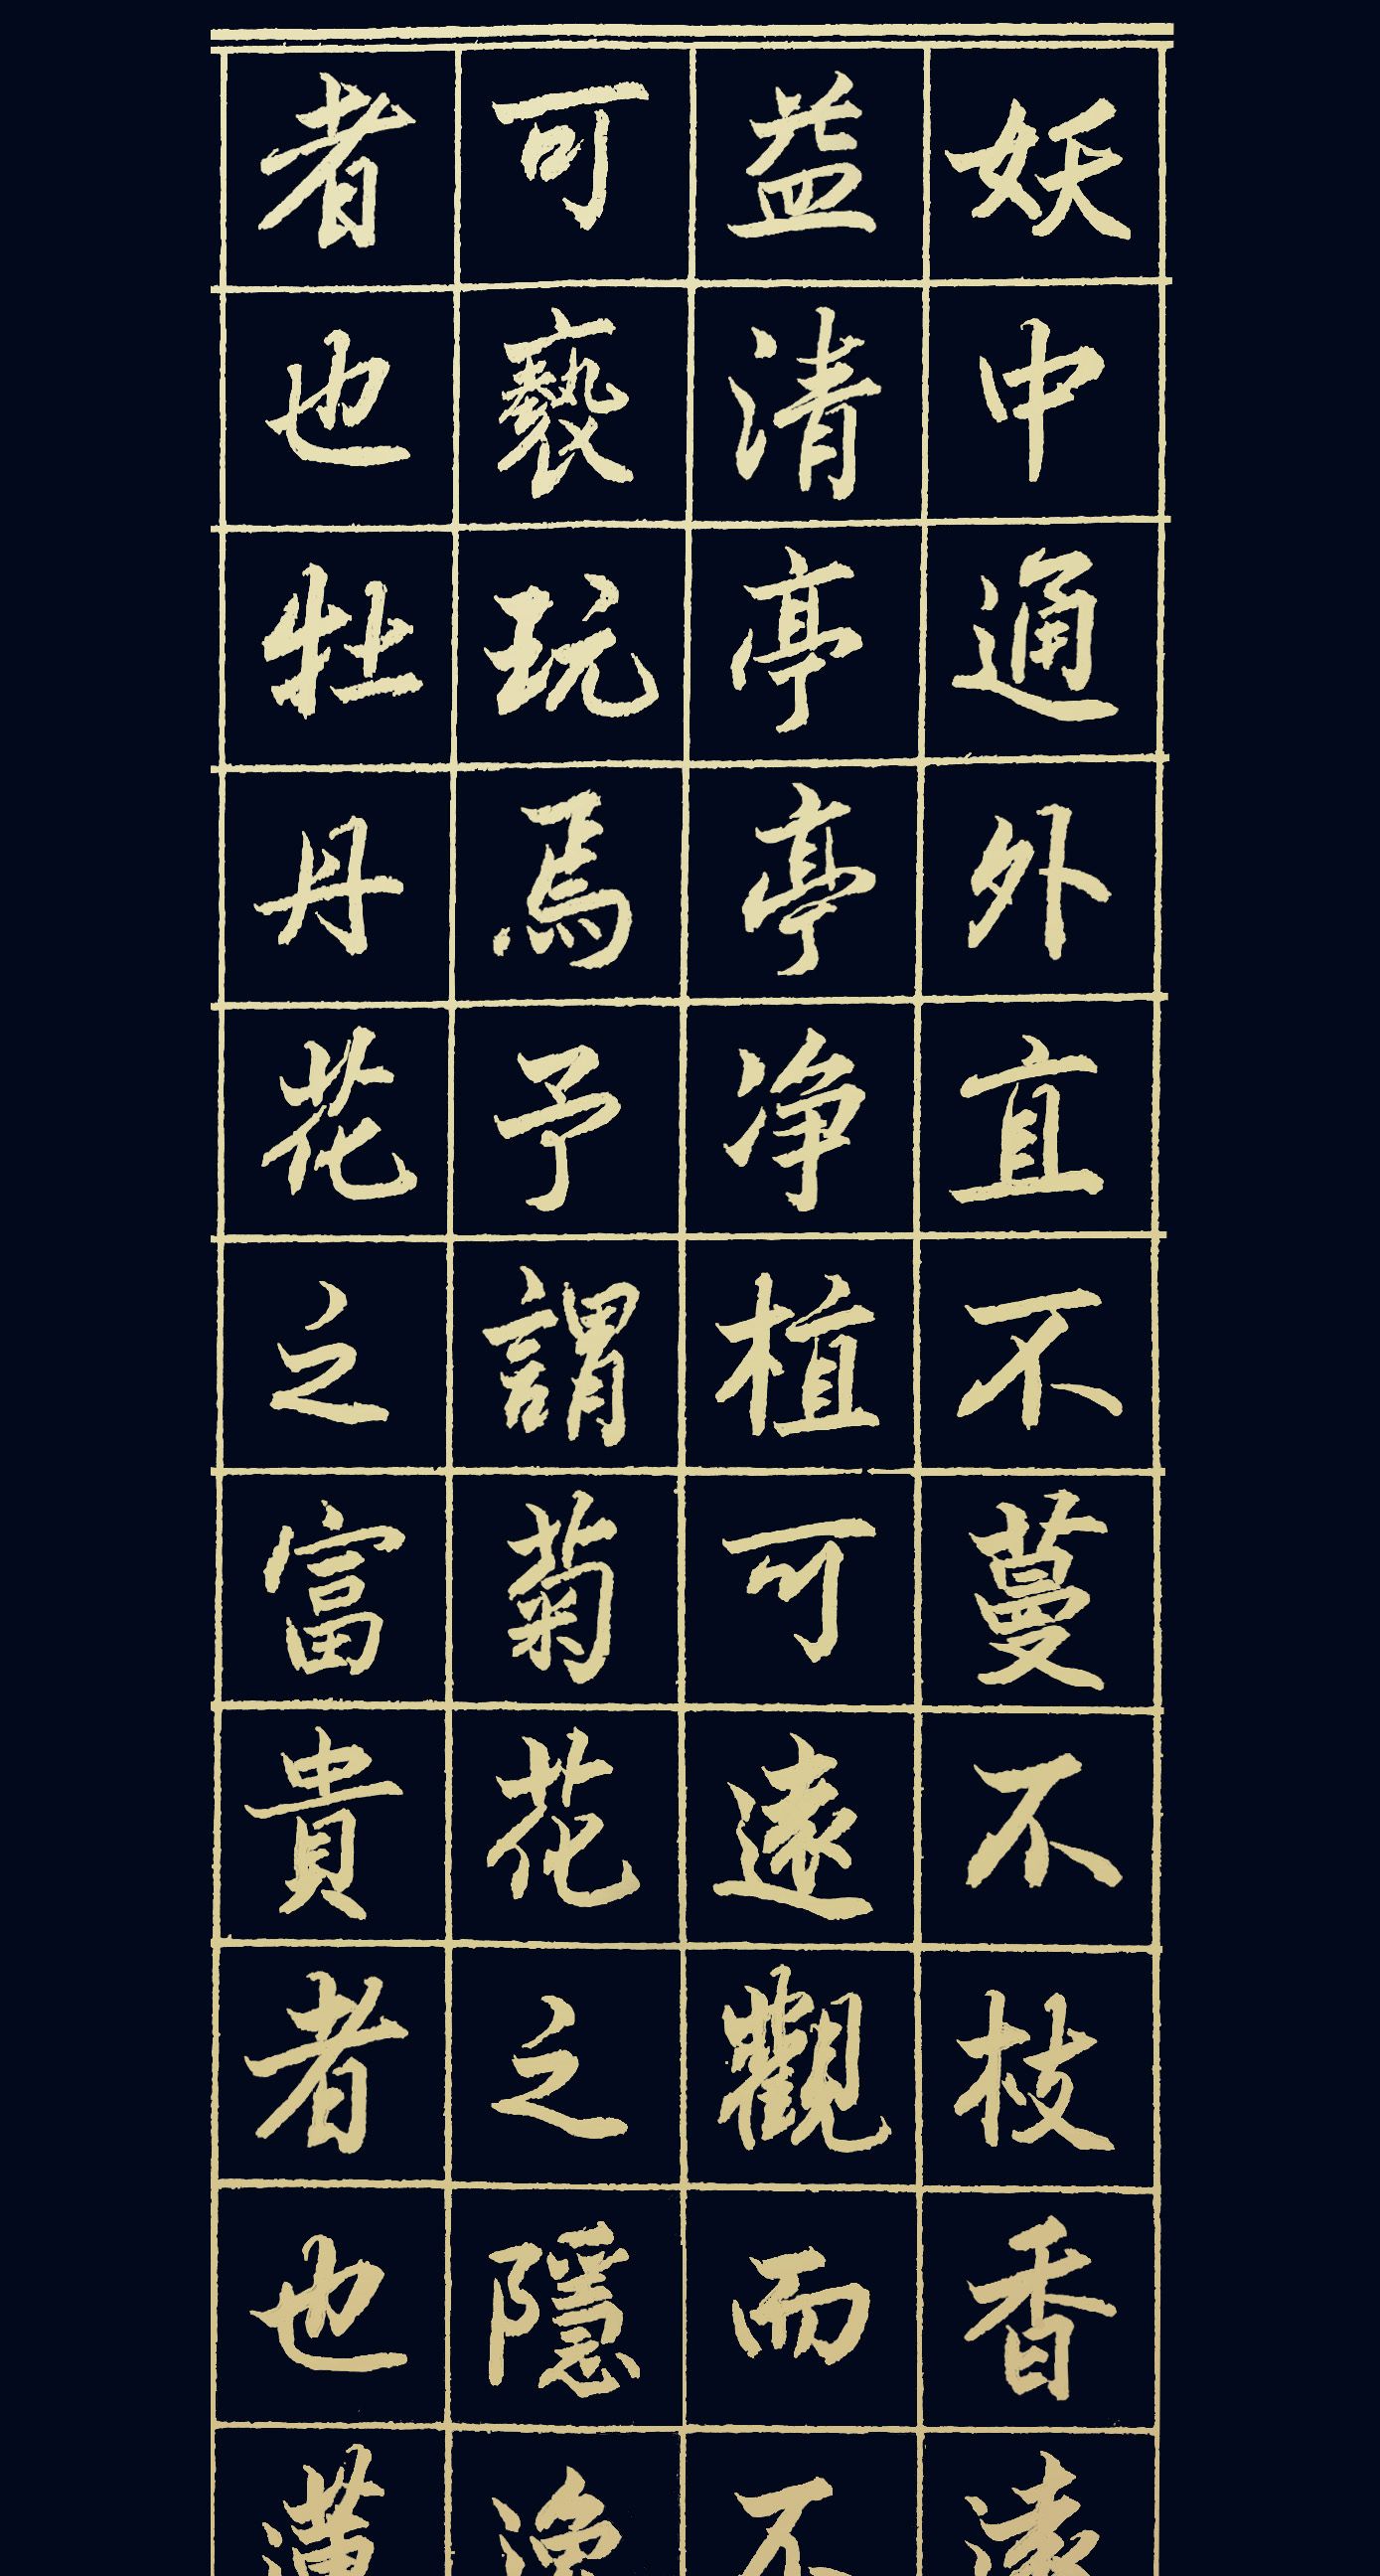 妖中通外直不蔓不枝香遠
益清亭亭净植可遠觀而不
可褻玩焉予謂菊花之隱逸
者也牡丹花之富貴者也蓮